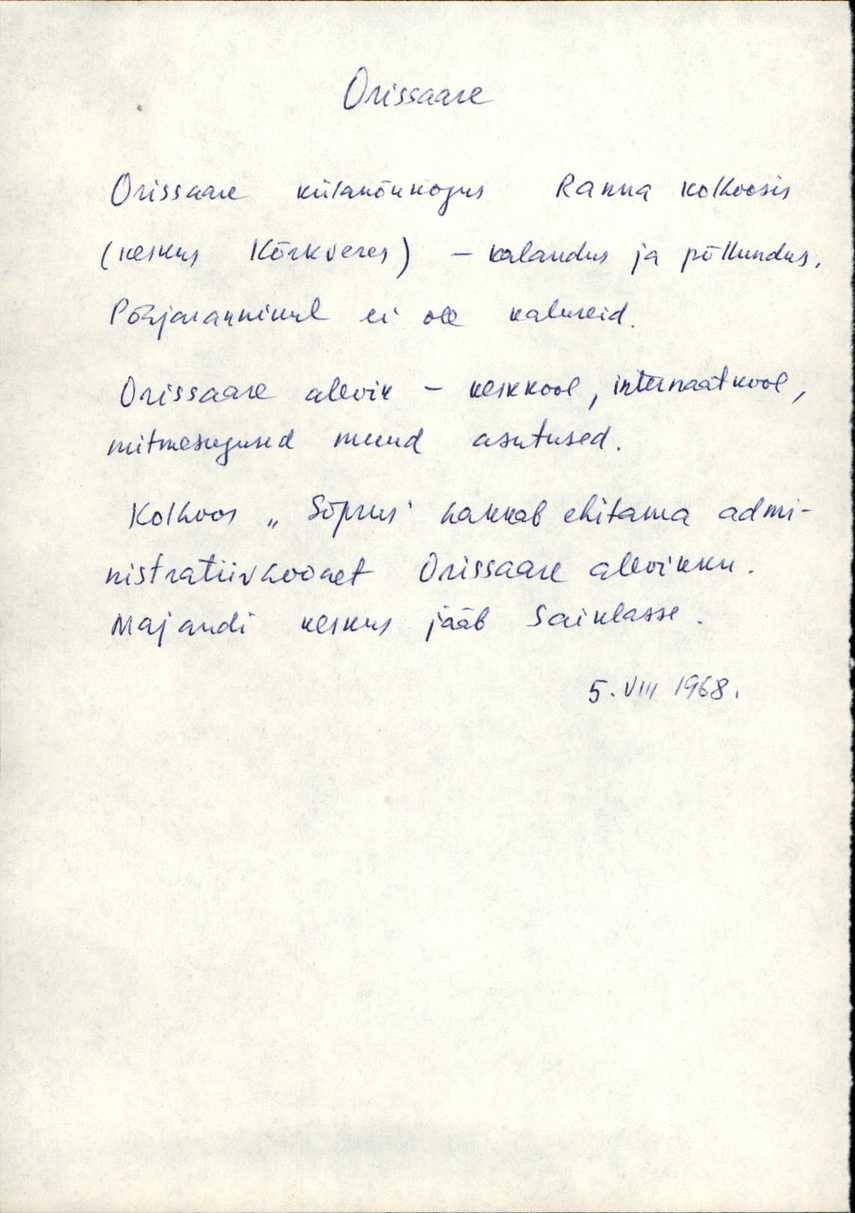 Orissaare
Orissaare külanõukogus Ranna kolhoosis
(keskus Kõrkveres) – kalandus ja põllundus.
Põhjarannikul ei ole kalureid.
Orissaare alevik – keskkool, internaatkool,
mitmesugused muud asutused.
Kolhoos „Sõprus" hakkab ehitama admi-
nistratiivhoonet Orissaare alevikku.
Majandi keskus jääb Saiklasse.
5. VIII 1968.